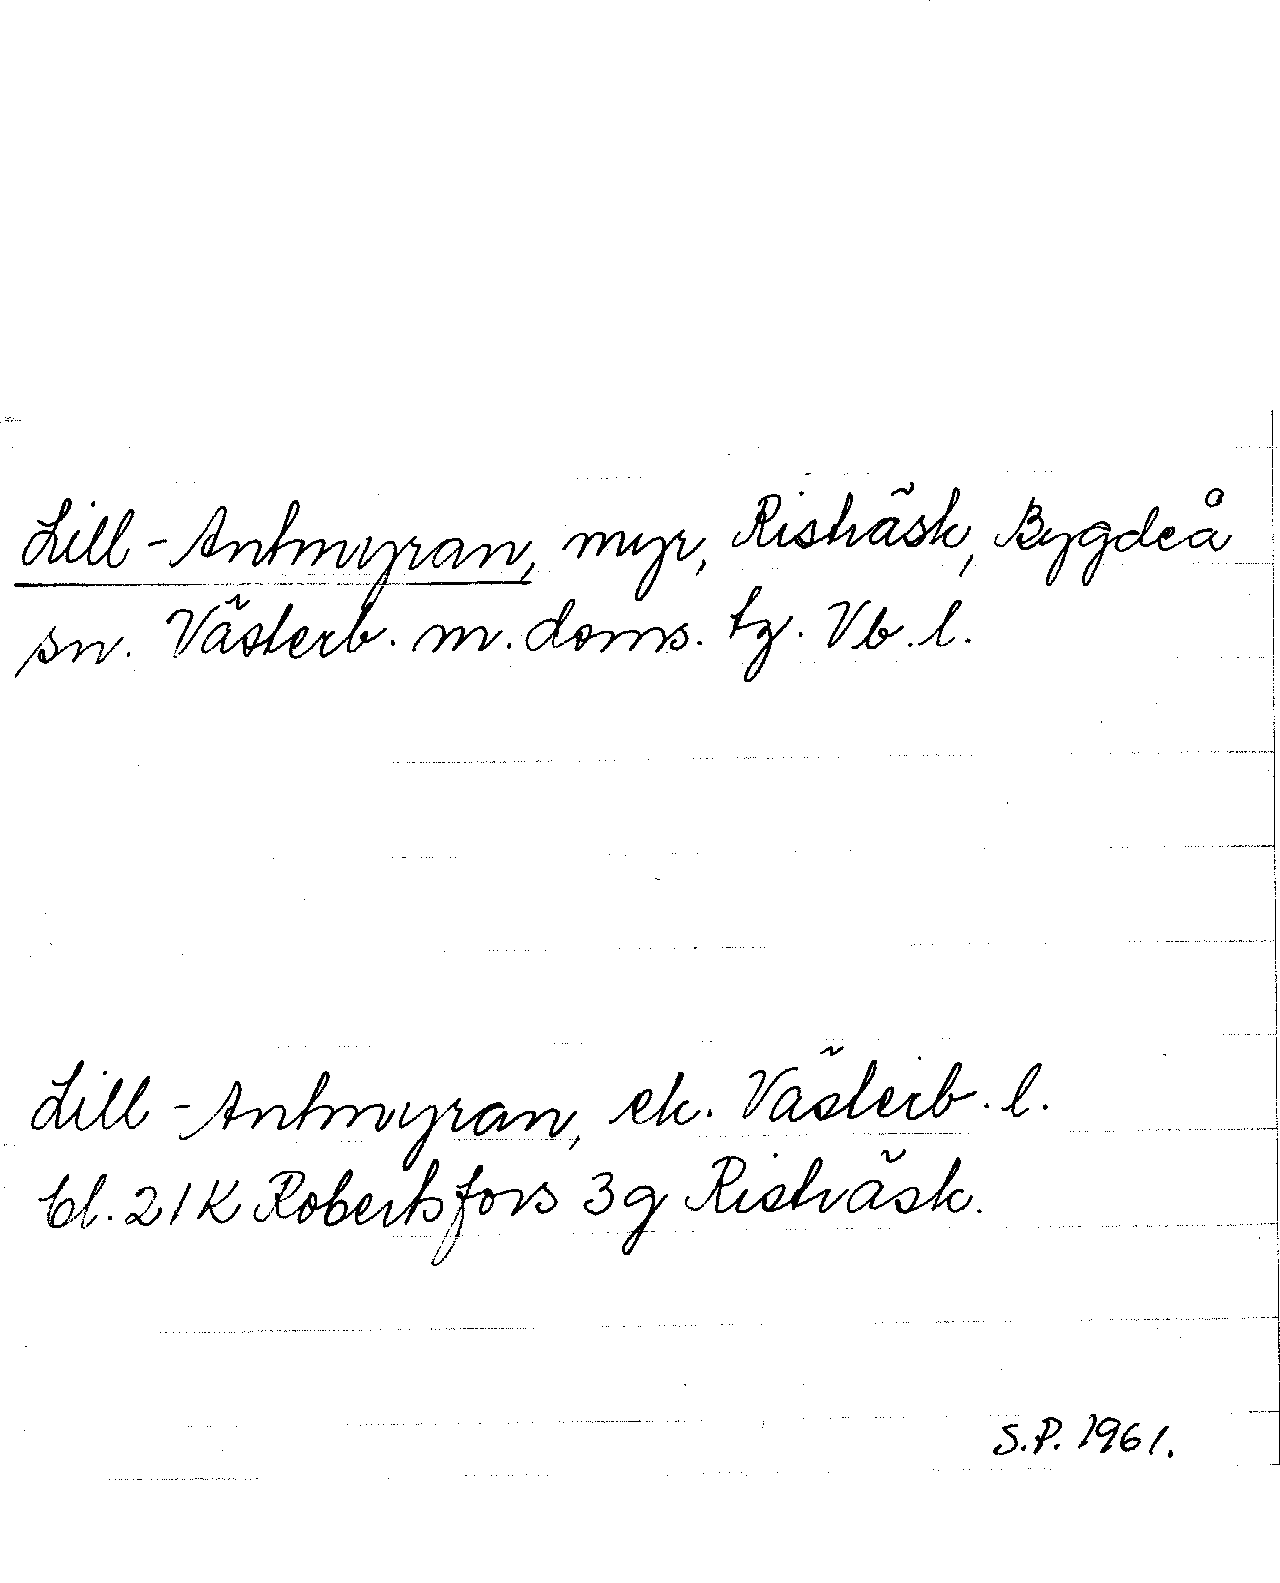 Lill-Antmyran, myr, Risträsk, Bygdeå
sn. Västerb. m. doms. tg. Vb. l.
Lill-Antmyran, ek. Västerb. l.
bl. 21K Robertsfors 3g Risträsk.
S.P. 1961.